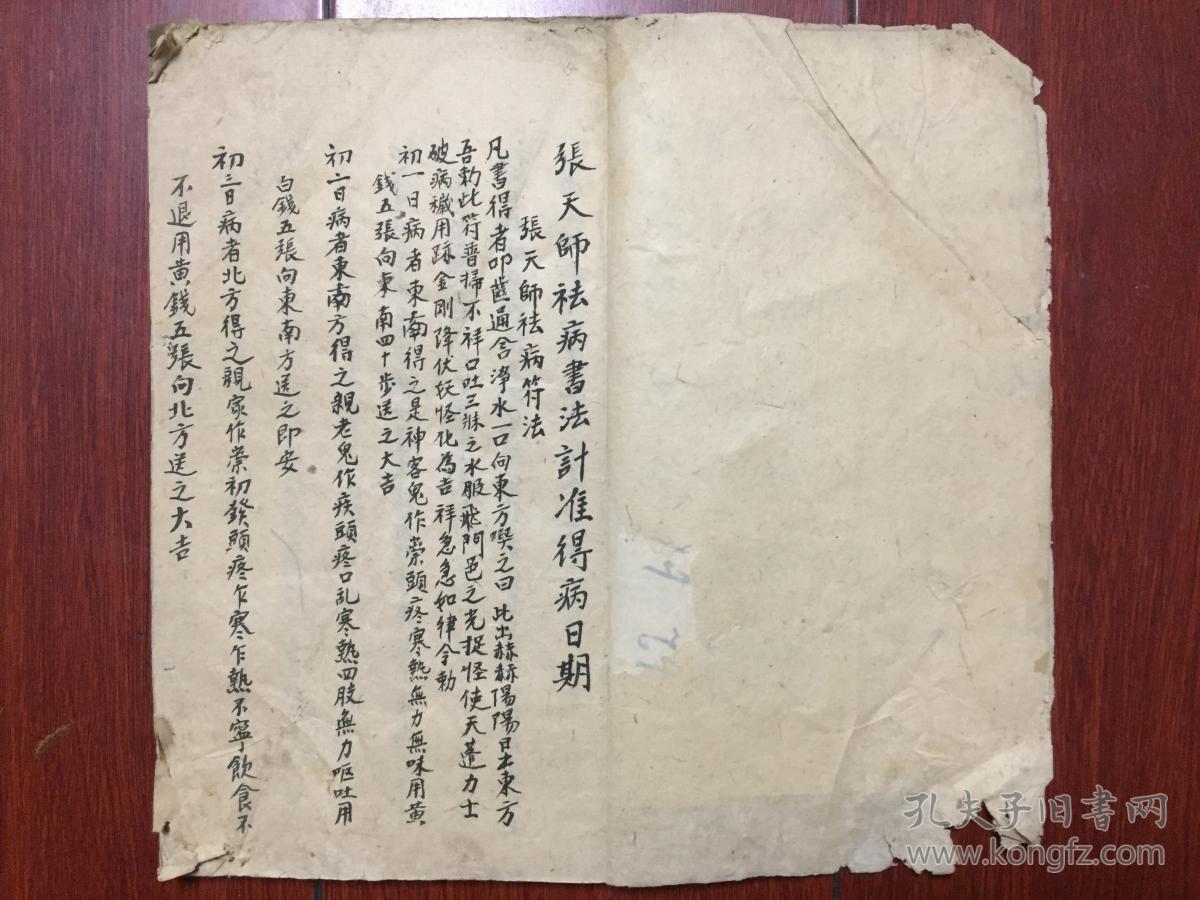 張天師祛病書法計准得病日期
張天師祛病符法
凡書得者叩齒通含淨水一口向東方噀之曰此出赫赫陽陽日出東方
吾勅此符普掃不祥口吐三昧之水服飛門邑之光捉怪使天蓬力士
破病穢用跡金剛降伏妖怪化為吉祥急急如律令勅
初一日病者東南得之是神客鬼作祟頭疼寒熱無力無味用黄
錢五張向東南四十步送之大吉
初二日病者東南方得之親老鬼作疾頭疼口乱寒熱四肢無力嘔吐用
白錢五張向東南方送之即安
初三日病者北方得之親家作祟初發頭疼乍寒乍熱不寧飲食不
不退用黄錢五張向北方送之大吉
孔夫子旧书网
www.kongfz.com